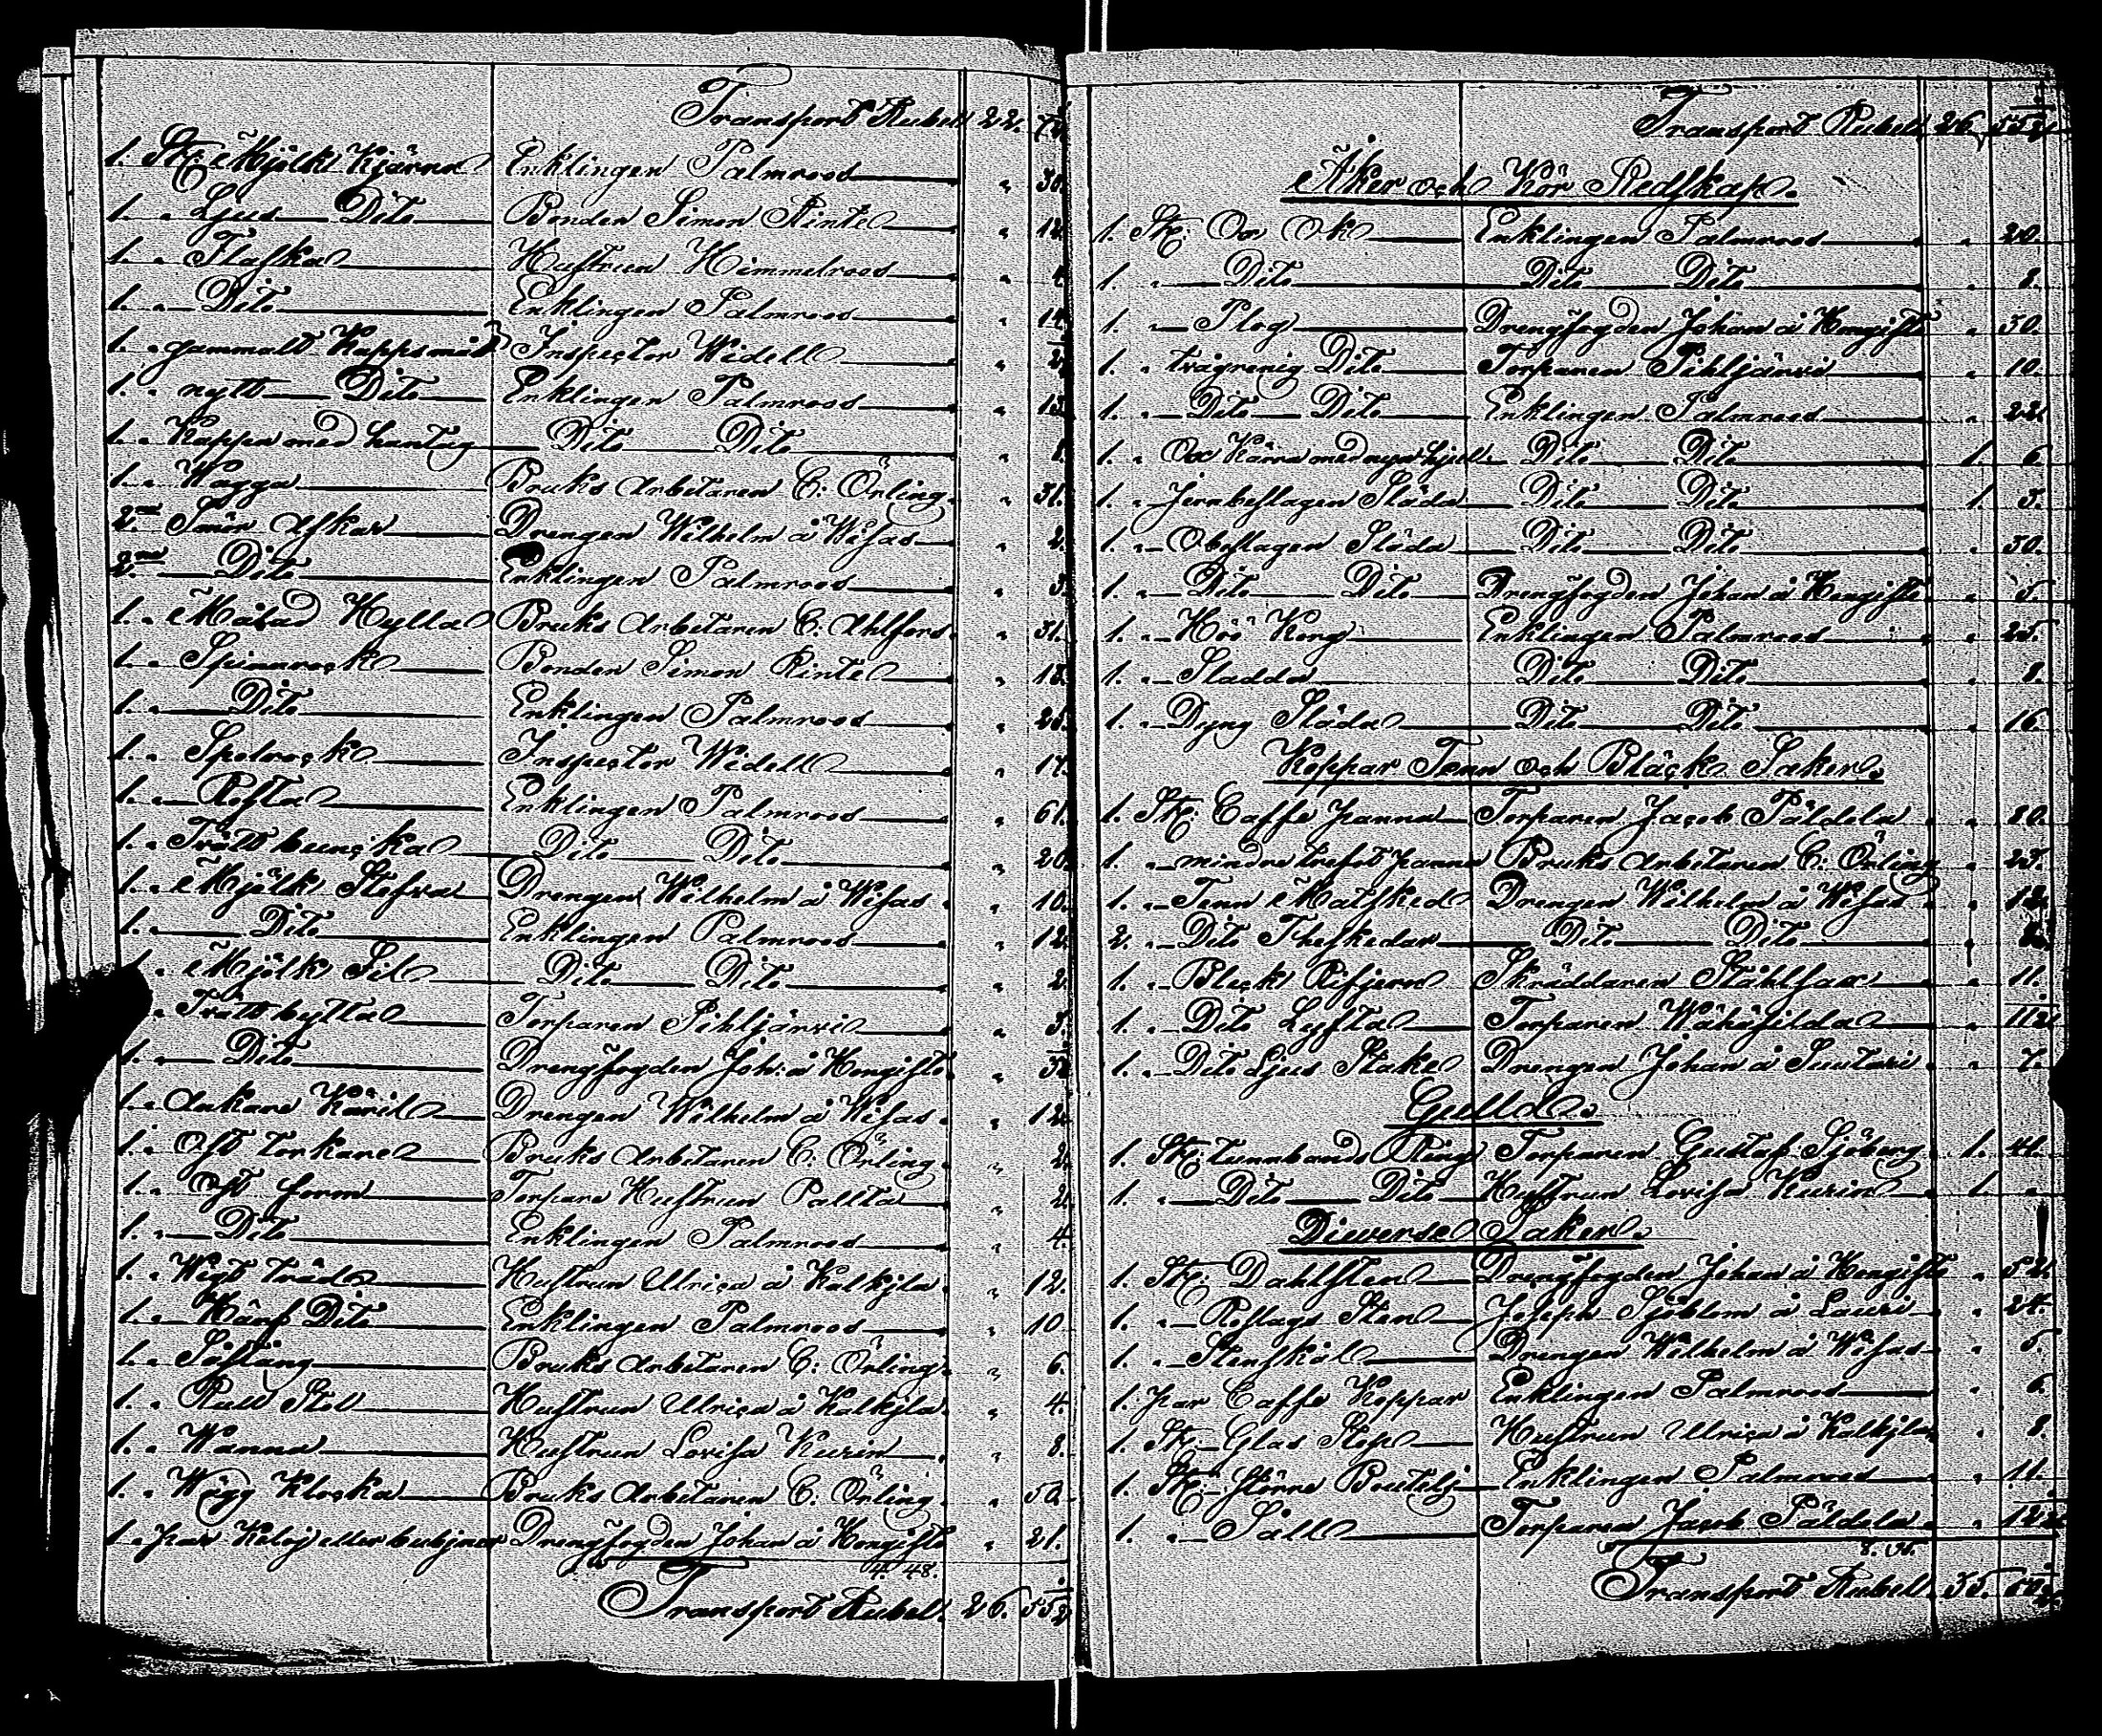 Transport Rubel 22.
1. St: Mjölk Kjärna Enklingen Palmroos " 30.
1. " Ljus Dito Bonden Simon Rintel " 12.
1. " Flaska Hustrun Himmelroos "
1. " Dito Enklingen Palmroos " 14.
1. " gammalt Kappsmått Inspector Widell "
1. " nytt Dito Enklingen Palmroos " 13.
1. " Kappa med hantag Dito Dito " 8.
1. " Wagga Bruks Arbetaren C: Örling " 31.
2ne Smör Askar Drengen Wilhelm å Wisas " 2.
2ne Dito Enklingen Palmroos " 3.
1. " Målad Hylla Bruks Arbetaren C. Ahlfors " 31.
1. " Spinnrock Bonden Simon Rintel " 13.
1. " Dito Enklingen Palmroos "
1. " Spolrock Inspector Widell " 17.
1. " Rosta Enklingen Palmroos " 61.
1. " Tvättbuncka Dito Dito " 20.
1. " Mjölk Stefva Drengen Wilhelm å Wisas " 10.
1. " Dito Enklingen Palmroos " 12.
" Mjölk Sil Dito Dito " 2.
" Tvättbytta Torparen Pihljärvi " 3.
1. " Dito Drengfogden Joh: å Hongisto "
1. " Ankare Käril Drengen Wilhelm å Wisas " 12.
1. " Ost torkare Bruks Arbetaren C. Örling " 2.
1. " Ost form Torpare Hustrun Pallta " 2.
1. " Dito Enklingen Palmroos " 4.
1. " Wigt träd Hustrun Ulrica å Kalkjla " 12.
1. " Dito Enklingen Palmroos " 10
1. " Sostång Bruks Arbetaren C: Örling " 6.
1. " Rull Stol Hustrun Ulrica å Kalkjla " 4.
1. " Wanna Hustrun Lovisa Kurin " 8.
1. " Wägg Klocka Bruks Arbetaren C. Örling " 50.
1. " par eller Drengfogden Johan å Hongisto " 21.
4. 48.
Transport Rubel 26. 55 1/2
Transport Rubel 26. 55 1/2
Åker och Kör Redskap.
1. St: Ox Ok Enklingen Palmroos " 20.
1. " Dito Dito Dito " 8.
1. " Plog Drengfogden Johan å Hongisto " 30.
1. " tvägrenig Dito Torparen Pihljärvi " 10.
1. " Dito Dito Enklingen Palmroos " 22.
1. " Ox Kärra med nya hjul Dito Dito 1. 6.
1. " Jernbeslagen Släda Dito Dito 1. 3.
1. " Obeslagen Släda Dito Dito " 30.
1. " Dito Dito Drengfogden Johan å Hongisto " 5.
1. " Höö Korg Enklingen Palmroos " 25.
1. " Sladda Dito Dito " 8.
1. " Dyng Släda Dito Dito " 16.
Koppar Tenn och Bläck Saker.
1. St: Caffe panna Torparen Jacob Päldela " 80.
1. " mindre trefot panna Bruks Arbetaren C: Örling " 23.
1. " Tenn Matsked Drengen Wilhelm å Wisas " 12.
2. " Dito Theskedar Dito Dito "
1. " Bleck Rifjern Skräddaren Ståhlsax " 11.
1. " Dito Lykta Torparen Wähäsilda "
1. " Dito Ljus Stake Drengen Johan å Suutari " 7.
Gull.
1. St: tunnbands Ring Torparen Gustaf Sjöberg 1. 41.
1. " Dito Dito Hustrun Lovisa Kurin 1. "
Diverse Saker.
1. St: Dahlsten Drengfogden Johan å Hongisto " 52.
1. " Roslags Sten Joseph Sjöblom å Lauri " 24.
1. " Stenskål Drengen Wilhelm å Wisas " 5.
1. par Caffe Koppar Enklingen Palmroos " 6.
1. St: Glas Stop Hustrun Ulrica å Kalkjla " 8.
1. St: större Boutelj Enklingen Palmroos " 11.
1. " Såll Torparen Jacob Päldela "
Transport Rubel 35.